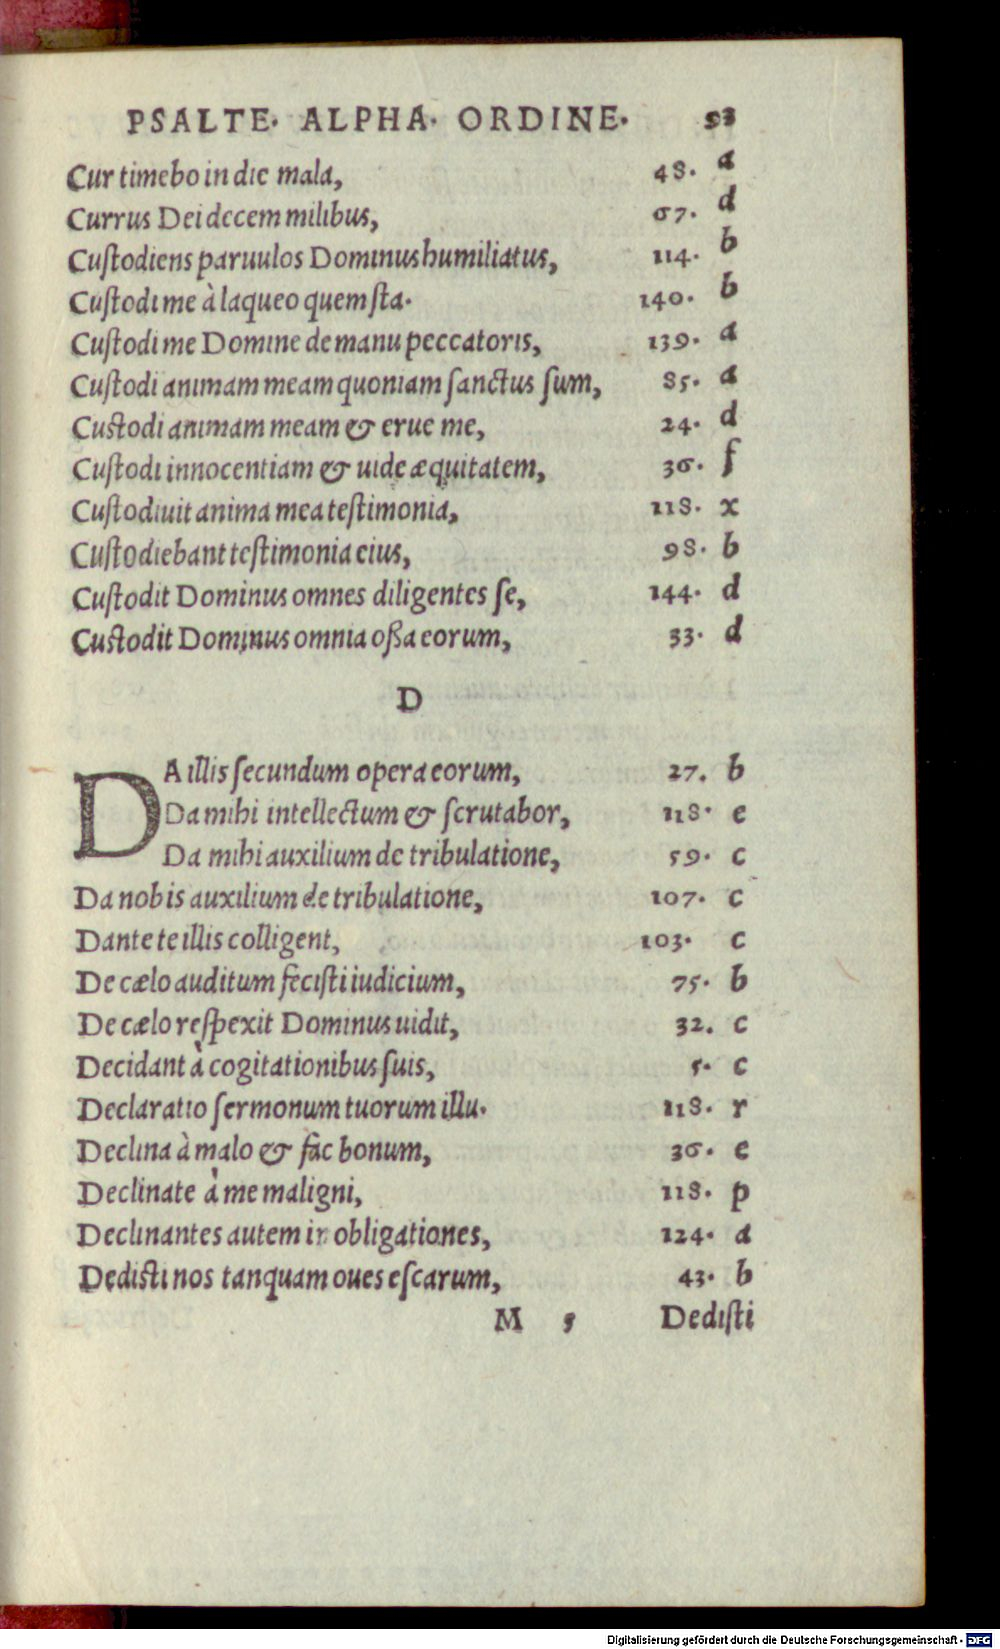 PSALTE· ALPHA· ORDINE· 53
Cur timebo in die mala, 48. a
Currus Dei decem milibus, 67. d
Cuſtodiens paruulos Dominus humiliatus, 114. b
Cuſtodi me à laqueo quem ſta· 140. b
Cuſtodi me Domine de manu peccatoris, 139. a
Cuſtodi animam meam quoniam ſanctus ſum, 85. a
Cuſtodi animam meam & erue me, 24. d
Cuſtodi innocentiam & uide æquitatem, 36. f
Cuſtodiuit anima mea teſtimonia, 118. x
Cuſtodiebant teſtimonia eius, 98. b
Cuſtodit Dominus omnes diligentes ſe, 144. d
Cuſtodit Dominus omnia oſſa eorum, 33. d
D
DA illis ſecundum opera eorum, 27. b
Da mihi intellectum & ſcrutabor, 118. e
Da mihi auxilium de tribulatione, 59. c
Da nobis auxilium de tribulatione, 107. c
Dante te illis colligent, 103. c
De cælo auditum feciſti iudicium, 75. b
De cælo reſpexit Dominus uidit, 32. c
Decidant à cogitationibus ſuis, 5. c
Declaratio ſermonum tuorum illu· 118. r
Declina à malo & fac bonum, 36. e
Declinate à me maligni, 118. p
Declinantes autem in obligationes, 124. a
Dediſti nos tanquam oues eſcarum, 43. b
M 5 Dediſti
Digitalisierung gefördert durch die Deutsche Forschungsgemeinschaft - DFG